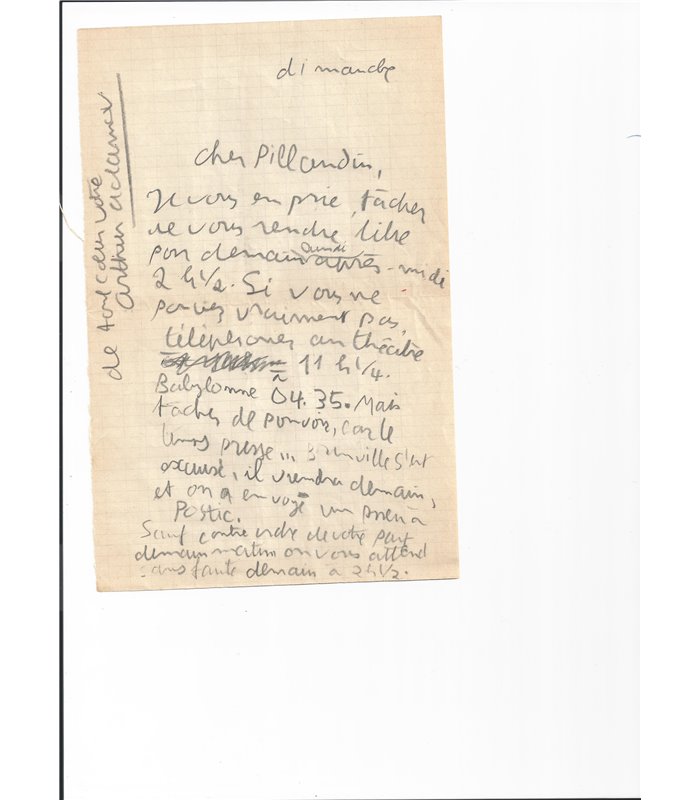 dimanche
cher Pillaudin,
Je vous en prie, tâchez
de vous rendre libre
pour demain après-midi
2 h 1/2. Si vous ne
pouvez vraiment pas,
téléphonez au théâtre
à 11 h 1/4.
Babylonne 04.35. Mais
tachez de pouvoir, car le
temps presse... s'est
excusé, il viendra demain,
et on a envoyé un pneu à
Postic.
Sauf contre ordre de votre part
demain matin on vous attend
sans faute demain à 2 h 1/2.
de tout cœur votre
Arthur Adamov